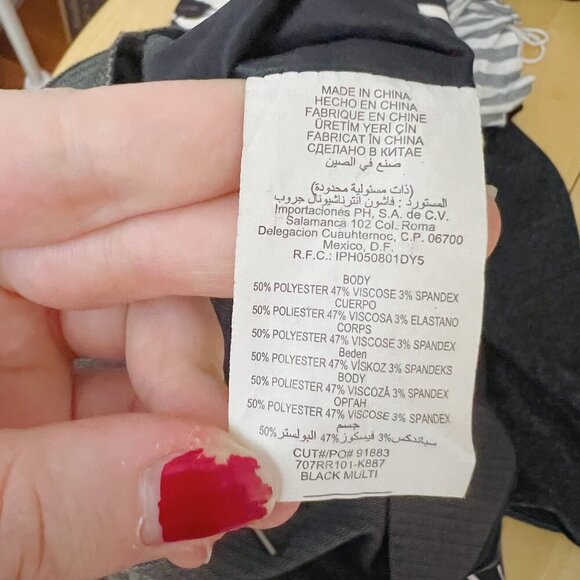 MADE IN CHINA
HECHO EN CHINA
FABRIQUE EN CHINE
ÜRETİM YERİ ÇİN
FABRICAT ÎN CHINA
СДЕЛАНО В КИТАЕ
صنع في الصين
(ذات مسئولية محدودة)
المستورد : فاشون انترناشيونال جروب
Importaciones PH, S.A. de C.V.
Salamanca 102 Col. Roma
Delegacion Cuauhternoc, C.P. 06700
Mexico, D.F.
R.F.C.: IPH050801DY5
BODY
50% POLYESTER 47% VISCOSE 3% SPANDEX
CUERPO
50% POLIESTER 47% VISCOSA 3% ELASTANO
CORPS
50% POLYESTER 47% VISCOSE 3% SPANDEX
Beden
50% POLYESTER 47% VİSKOZ 3% SPANDEKS
BODY
50% POLIESTER 47% VISCOZĂ 3% SPANDEX
ОРГАН
50% POLYESTER 47% VISCOSE 3% SPANDEX
جسم
50% البولستر 47% فيسكوز 3% سباندكس
CUT#/PO# 91883
707RR101-K887
BLACK MULTI